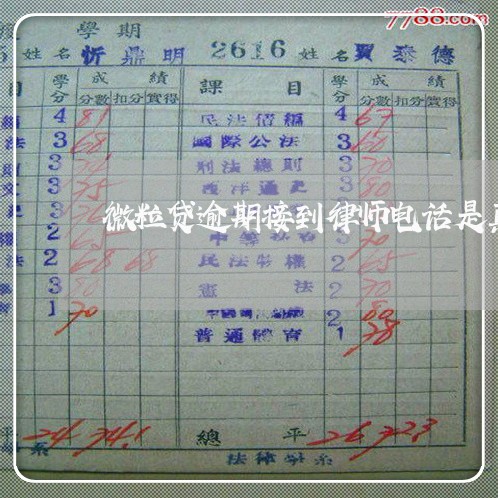 7788.com
學期
姓名 忻鼎明 2616 姓名 賈泰德
目 學分 成績 課目 學分 成績
分數 扣分 實得 分數 扣分 實得
4 81 民法債編 4 67
法 3 68 國際公法 3 60
3 刑法總則 3 70
3 75 西洋通史 3 80
微粒贷逾期接到律师电话是真
2 3 70
法 2 68 68 民法物權 2 65
3 80 憲法 2 70
1 70 2 80
普通體育 1 78
平 24 74.1 總平 26 72.3
系 法律學系